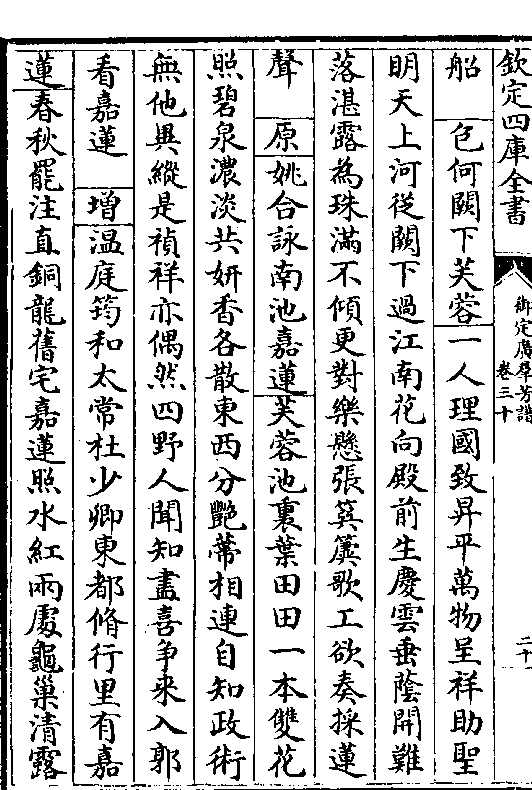 欽定四庫全書
御定廣羣芳譜
卷三十
二十
船 包何闕下芙蓉一人理國致昇平萬物呈祥助聖
明天上河從闕下過江南花向殿前生慶雲垂蔭開難
落湛露為珠滿不傾更對樂懸張簨簴歌工欲奏採蓮
聲 原姚合詠南池嘉蓮芙蓉池裏葉田田一本雙花
照碧泉濃淡共妍香各散東西分艷蔕相連自知政術
無他異縱是禎祥亦偶然四野人聞知盡喜爭來入郭
看嘉蓮 增溫庭筠和太常杜少卿東都脩行里有嘉
蓮春秋罷注直銅龍舊宅嘉蓮照水紅兩處龜巢清露